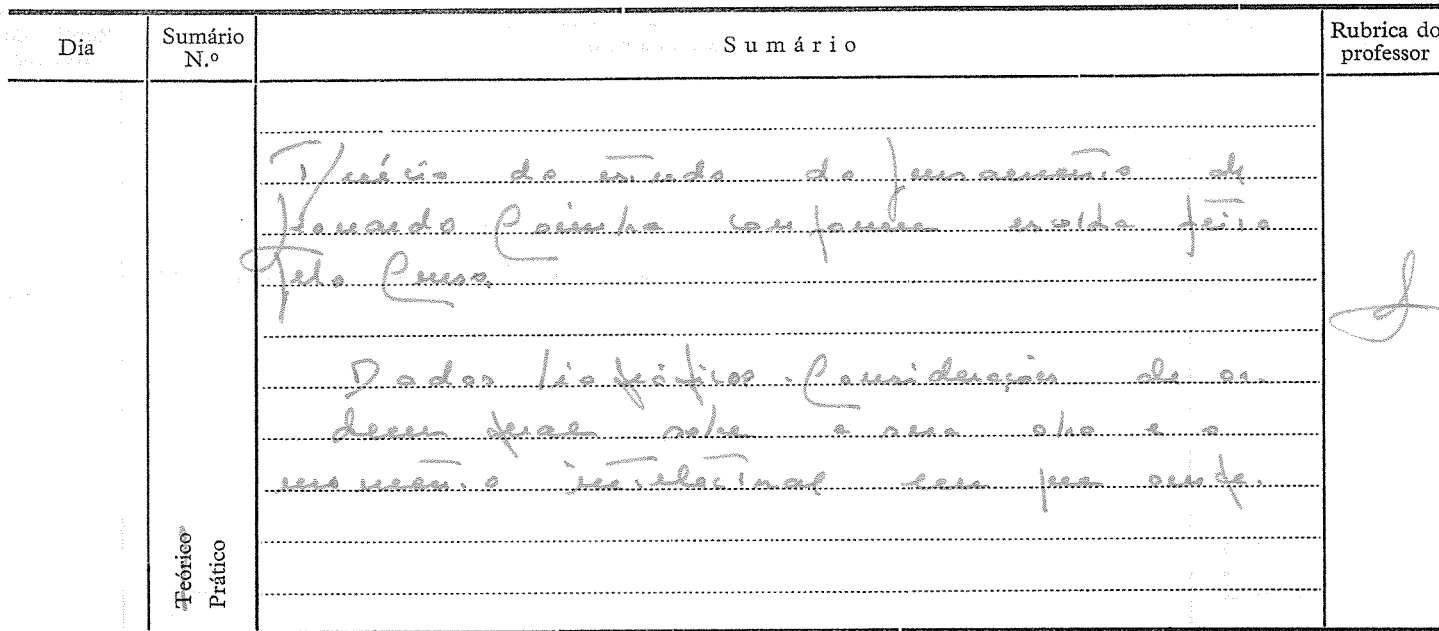 Dia
Sumário N.º
Sumário
Rubrica do professor
Início do estudo do pensamento de
Leonardo Coimbra conforme escolha feita
pelo Curso.
Dados biográficos. Considerações de or-
dem geral sobre a sua obra e o
momento intelectual em que surge.
Teórico
Prático